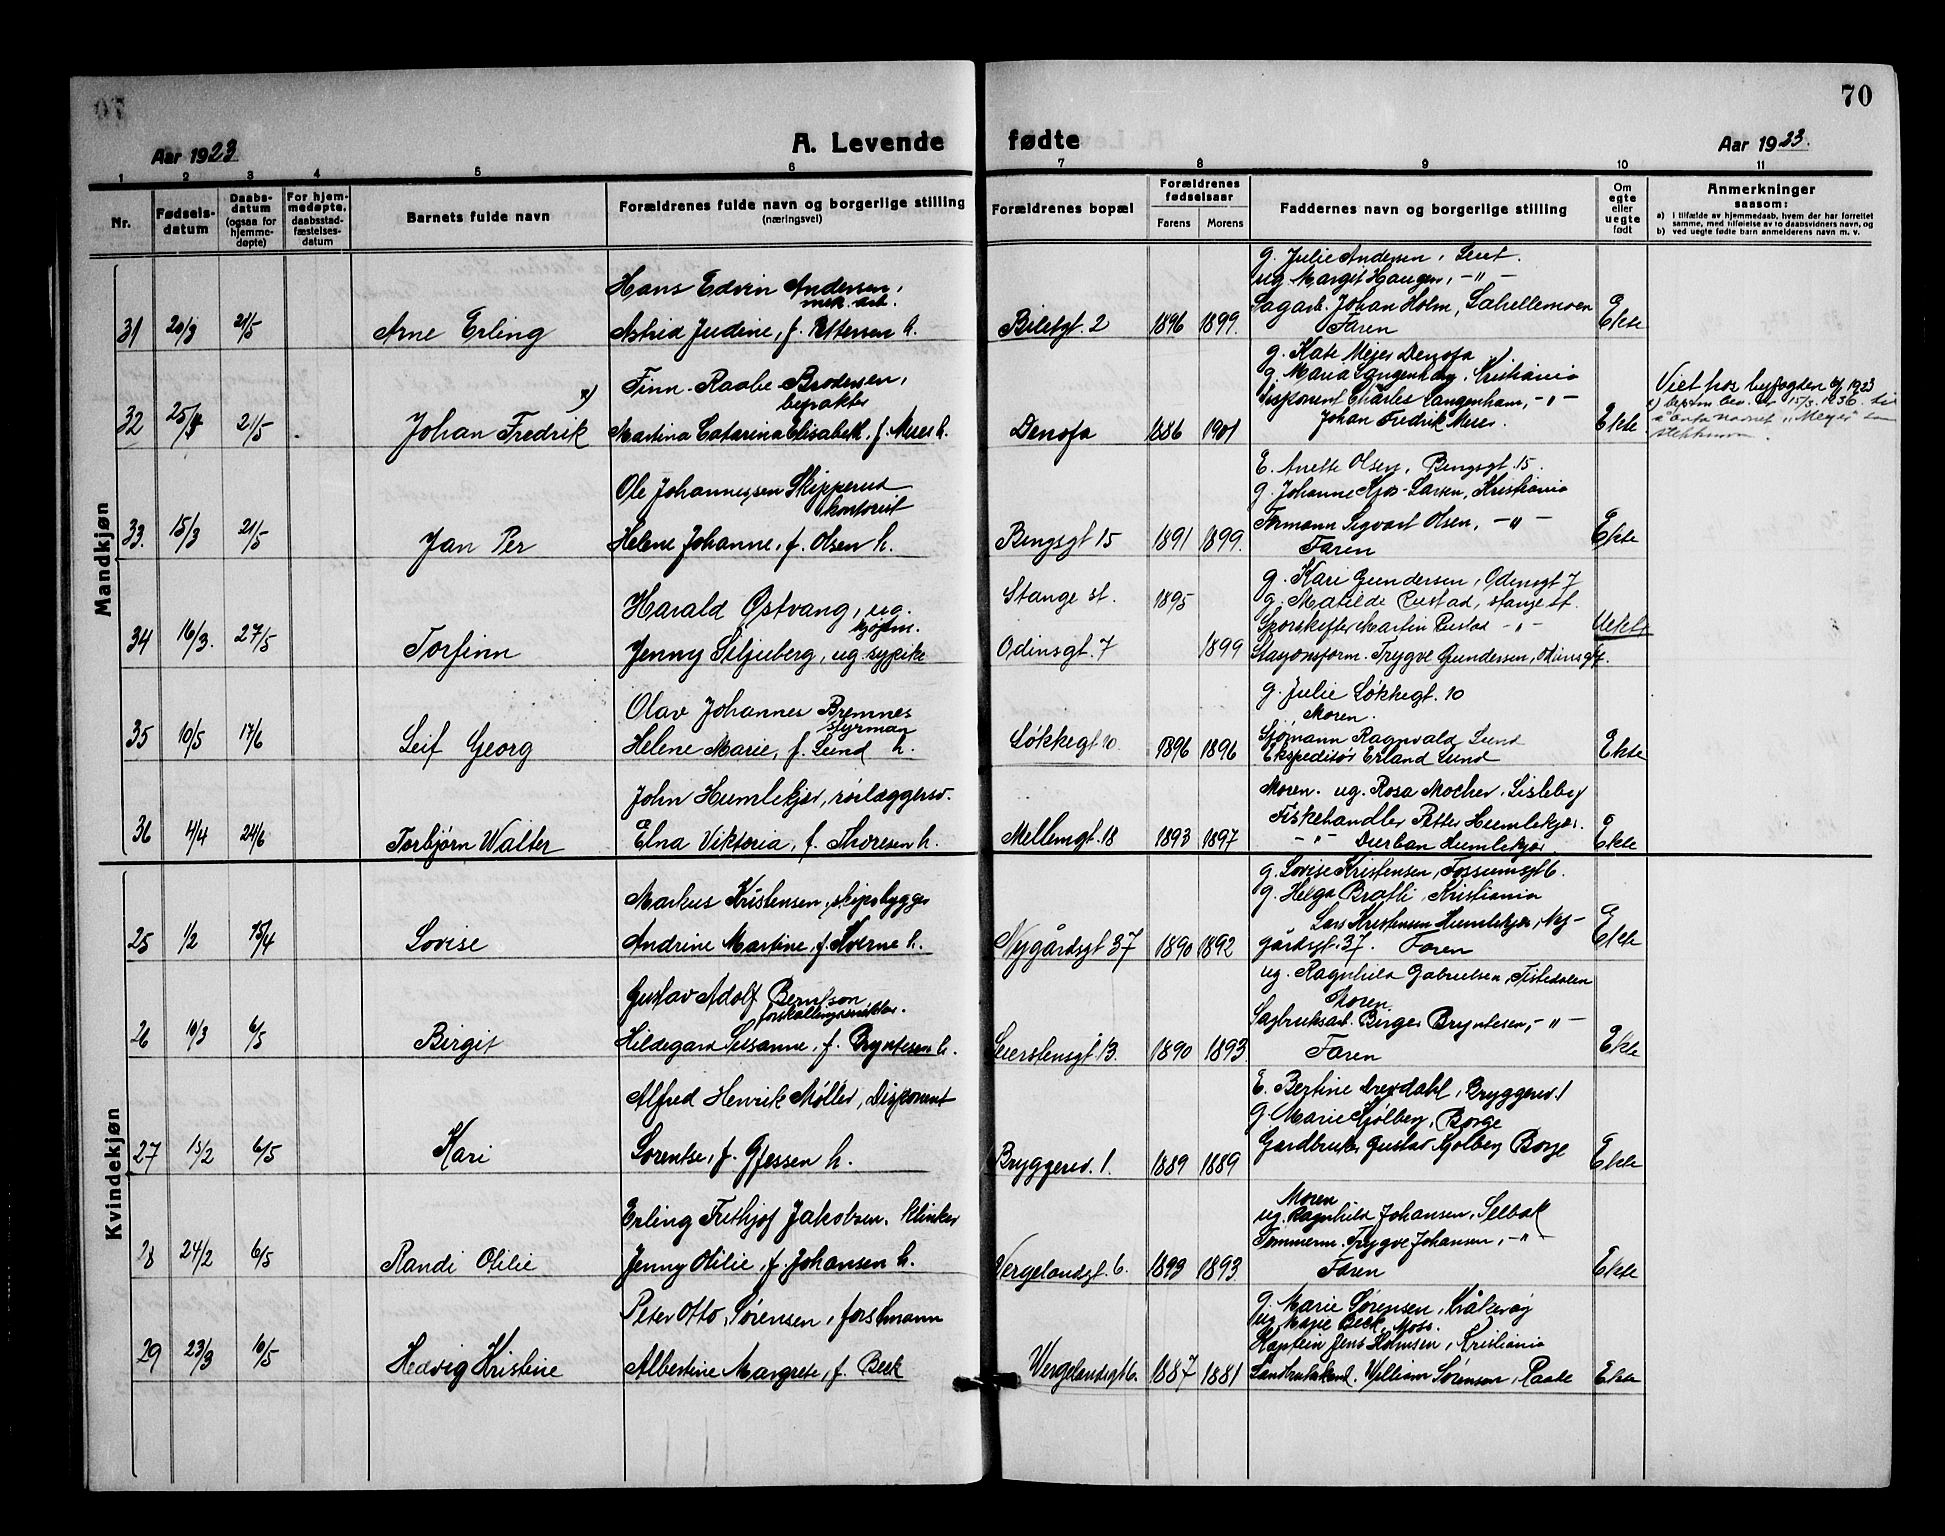 70
Aar 1923
A. Levende fødte
Aar 1923.
1 2 3 4 5 6 7 8 9 10 11
Nr.
Fødsels-
datum
Daabs-
datum
(ogsaa for
hjemme-
døpte)
For hjem-
medøpte,
daabsstad-
fæstelses-
datum
Barnets fulde navn
Forældrenes fulde navn og borgerlige stilling
(næringsvei)
Forældrenes bopæl
Forældrenes
fødselsaar
Farens Morens
Faddernes navn og borgerlige stilling
Om
egte
eller
uegte
født
Anmerkninger
saasom:
a) i tilfælde av hjemmedaab, hvem der har forrettet
samme, med tilføielse av to daabsvidners navn, og
b) ved uegte fødte barn anmelderens navn m. v.
Mandkjøn
31 20/3 21/5 Arne Erling
Hans Edvin Andersen,
mek. arb.
Astrid Judine, f. Pettersen h.
Biletgt. 2 1896 1899.
g. Julie Andersen,
ug. Margit Haugen, -"-
Sagarb. Johan Holm, Sahellemoen
Faren
Ekte
32 21/5 Johan Fredrik x)
Finn Raabe Brodersen,
Martina Catarina Elisabeth, f. Meier h.
Denofa 1886 1901
g. Kate Meier Denofa
g. Maria Langenham, Kristiania
Disponent Charles Langenham, -"-
Johan Fredrik Meier.
Ekte
Viet hos byfogden 1923
x) bestm. bev. av 15/3 1936 til
å anta navnet "Meyer" som
33. 15/3 21/5 Jan Per
Ole Johannessen Skipperud
kontorist
Helene Johanne, f. Olsen h.
Bingsgt 15 1891 1899.
E. Anette Olsen, Bingsgt. 15.
g. Johanne Kjos-Larsen, Kristiania
Formann Sigvart Olsen, -"-
Faren
Ekte
34 16/3. 27/5 Torfinn
Harald Østvang, ug.
kjøpm.
Jenny Siljuberg, ug sypike
Stange st. 1895
Odinsgt. 7 1899
g. Kari Gundersen, Odinsgt 7
g. Matilde Rustad, Stange st.
Martin Rustad -"-
Stasjonsform. Trygve Gundersen, Odinsgt 7.
Uekte
35 10/5 17/6 Leif Georg
Olav Johannes Bremnes
styrman
Helene Marie, f. Lund h.
Løkkegt 10. 1896 1896
g. Julie Løkkegt. 10
Moren.
Sjømann Ragnvald Lund
Ekspeditør Erland Lund
Ekte
36 4/4 24/6 Torbjørn Walter
John Humlekjær, rørlæggersv.
Elna Viktoria, f. Thoresen h.
Mellemgt. 18 1893 1897
Moren. ug. Rosa Mocher, Lisleby
Fiskehandler Petter Humlekjær.
-"- Durban Humlekjær
Ekte
Kvindekjøn
25 1/2 15/4 Lovise
Markus Kristensen, skipsbygger
Andrine Martine, f. Kverne h.
Nygårdsgt 37 1890 1892
g. Lovise Kristensen, Fossumsgt 6.
g. Helga Bratli, Kristiania
Lars Kristensen Humlekjær, Ny-
gårdsgt. 37. Faren
Ekte
26 10/3 6/5 Birgit
Gustav Adolf Berntson
Hildegard Susanne, f. Bryntesen h.
Seierstensgt. 13. 1890 1893.
ug. Ragnhild Gabrielsen, Tistedalen
Moren
Sagbruksarb. Birger Bryntesen, -"-
Faren
Ekte
27 15/2 6/5 Kari
Alfred Henrik Møller, Disponent
Sorentse, f. Gjessen h.
Bryggeriv. 1. 1889 1889
E. Bertine Drevdahl, Bryggeriv. 1
g. Marie Kjølberg, Borge
Gardbruker Gustav Kjølberg Borge
Ekte
28 24/2 6/5 Randi Otilie
Erling Fritjof Jakobsen, klinker
Jenny Otilie, f. Johansen h.
Vergelandsgt. 6. 1893 1893
Moren
ug. Ragnhild Johansen, Selbak
Tømmerm. Trygve Johansen, -"-
Faren
Ekte
29 23/3 10/5 Hedvig Kristine
Peter Otto Sørensen, forstmann
Albertine Margrete, f. Beck
Vergelandsgt 6. 1887 1881
g. Marie Sørensen, Kråkerøy
ug. Marie Beck, Moss.
Kaptein Jens Holmsen, Kristiania
Landbrukskand. William Sørensen, Raade
Ekte